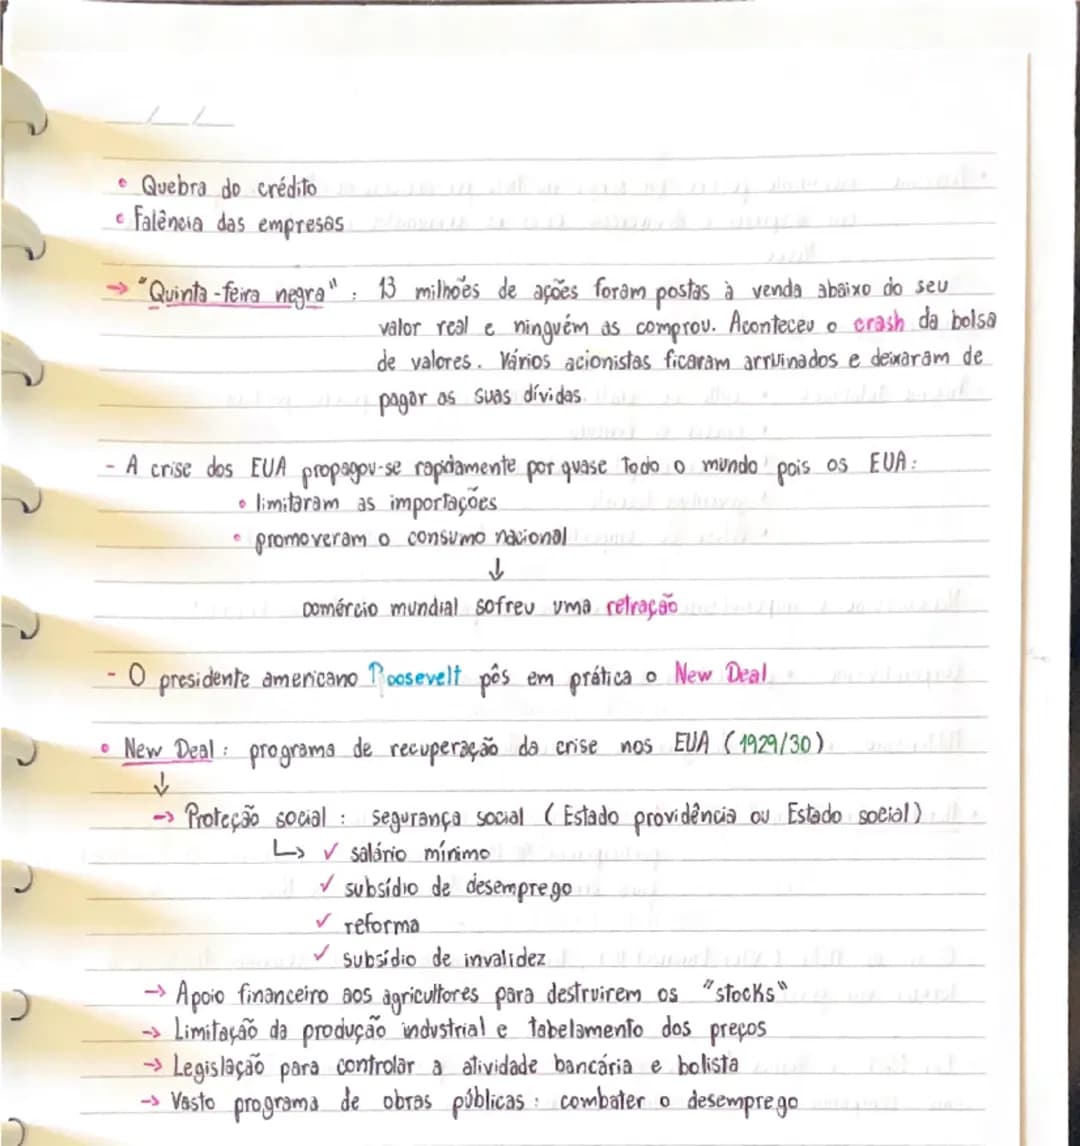 • Quebra do crédito
• Falência das empresas
→ "Quinta-feira negra": 13 milhões de ações foram postas à venda abaixo do seu
valor real e ninguém as comprou. Aconteceu o crash da bolsa
de valores. Vários acionistas ficaram arruinados e deixaram de
pagar as suas dívidas.
- A crise dos EUA propagou-se rapidamente por quase todo o mundo pois os EUA:
• limitaram as importações
• promoveram o consumo nacional
↓
comércio mundial sofreu uma retração
- O presidente americano Roosevelt pôs em prática o New Deal
• New Deal: programa de recuperação da crise nos EUA (1929/30)
↓
→ Proteção social: segurança social (Estado providência ou Estado social)
↳ ✓ salário mínimo
✓ subsídio de desemprego
✓ reforma
✓ subsídio de invalidez
→ Apoio financeiro aos agricultores para destruirem os "stocks"
→ Limitação da produção industrial e tabelamento dos preços
→ Legislação para controlar a atividade bancária e bolista
→ Vasto programa de obras públicas: combater o desemprego